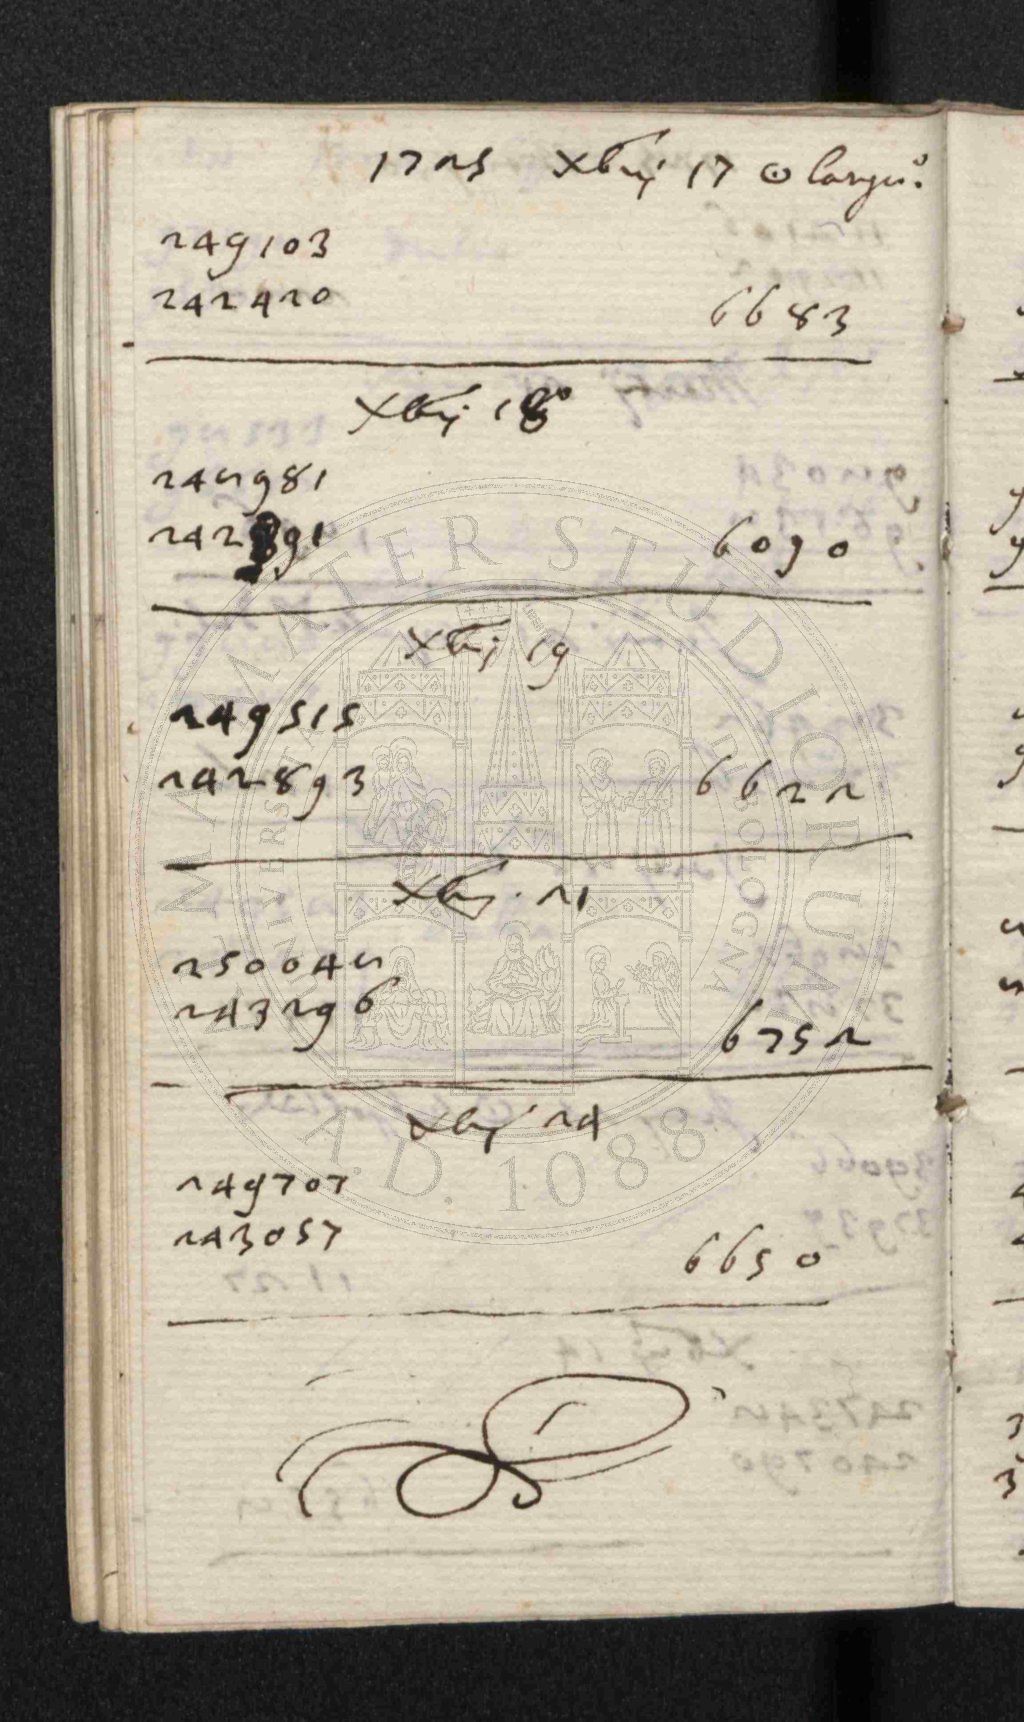 1725 Xbrij 17 ☉
249103
242420 6683
Xbrij 18
248981
242891 6090
Xbrij 19
249515
242893 6622
Xbrij. 21
250048
243296 6752
Xbrij 24
249707
243057 6650
ALMA MATER STUDIORUM
A.D. 1088